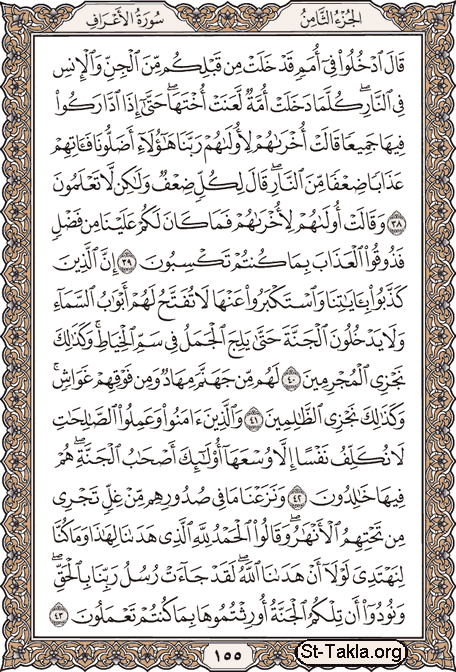 الجزء الثامن
سورة الأعراف
قَالَ ٱدْخُلُوا۟ فِىٓ أُمَمٍ قَدْ خَلَتْ مِن قَبْلِكُم مِّنَ ٱلْجِنِّ وَٱلْإِنسِ
فِى ٱلنَّارِ ۖ كُلَّمَا دَخَلَتْ أُمَّةٌ لَّعَنَتْ أُخْتَهَا ۖ حَتَّىٰٓ إِذَا ٱدَّارَكُوا۟
فِيهَا جَمِيعًا قَالَتْ أُخْرَىٰهُمْ لِأُولَىٰهُمْ رَبَّنَا هَٰٓؤُلَآءِ أَضَلُّونَا فَـَٔاتِهِمْ
عَذَابًا ضِعْفًا مِّنَ ٱلنَّارِ ۖ قَالَ لِكُلٍّ ضِعْفٌ وَلَٰكِن لَّا تَعْلَمُونَ
٣٨ وَقَالَتْ أُولَىٰهُمْ لِأُخْرَىٰهُمْ فَمَا كَانَ لَكُمْ عَلَيْنَا مِن فَضْلٍ
فَذُوقُوا۟ ٱلْعَذَابَ بِمَا كُنتُمْ تَكْسِبُونَ ٣٩ إِنَّ ٱلَّذِينَ
كَذَّبُوا۟ بِـَٔايَٰتِنَا وَٱسْتَكْبَرُوا۟ عَنْهَا لَا تُفَتَّحُ لَهُمْ أَبْوَٰبُ ٱلسَّمَآءِ
وَلَا يَدْخُلُونَ ٱلْجَنَّةَ حَتَّىٰ يَلِجَ ٱلْجَمَلُ فِى سَمِّ ٱلْخِيَاطِ ۚ وَكَذَٰلِكَ
نَجْزِى ٱلْمُجْرِمِينَ ٤٠ لَهُم مِّن جَهَنَّمَ مِهَادٌ وَمِن فَوْقِهِمْ غَوَاشٍ ۚ
وَكَذَٰلِكَ نَجْزِى ٱلظَّٰلِمِينَ ٤١ وَٱلَّذِينَ ءَامَنُوا۟ وَعَمِلُوا۟ ٱلصَّٰلِحَٰتِ
لَا نُكَلِّفُ نَفْسًا إِلَّا وُسْعَهَآ أُو۟لَٰٓئِكَ أَصْحَٰبُ ٱلْجَنَّةِ ۖ هُمْ
فِيهَا خَٰلِدُونَ ٤٢ وَنَزَعْنَا مَا فِى صُدُورِهِم مِّنْ غِلٍّ تَجْرِى
مِن تَحْتِهِمُ ٱلْأَنْهَٰرُ ۖ وَقَالُوا۟ ٱلْحَمْدُ لِلَّهِ ٱلَّذِى هَدَىٰنَا لِهَٰذَا وَمَا كُنَّا
لِنَهْتَدِىَ لَوْلَآ أَنْ هَدَىٰنَا ٱللَّهُ ۖ لَقَدْ جَآءَتْ رُسُلُ رَبِّنَا بِٱلْحَقِّ ۖ
وَنُودُوٓا۟ أَن تِلْكُمُ ٱلْجَنَّةُ أُورِثْتُمُوهَا بِمَا كُنتُمْ تَعْمَلُونَ ٤٣
١٥٥
St-Takla.org